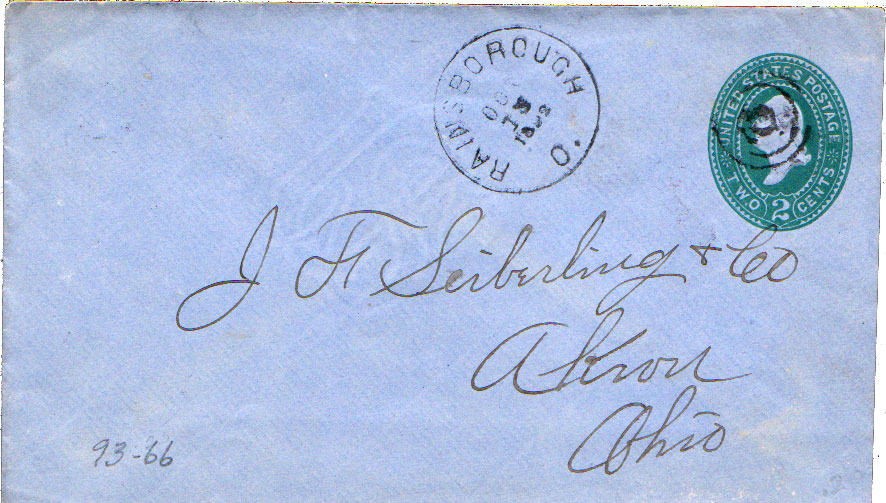 RAINSBOROUGH O.
UNITED STATES POSTAGE
TWO 2 CENTS
J F Seiberling & Co
Akron
Ohio
93-66